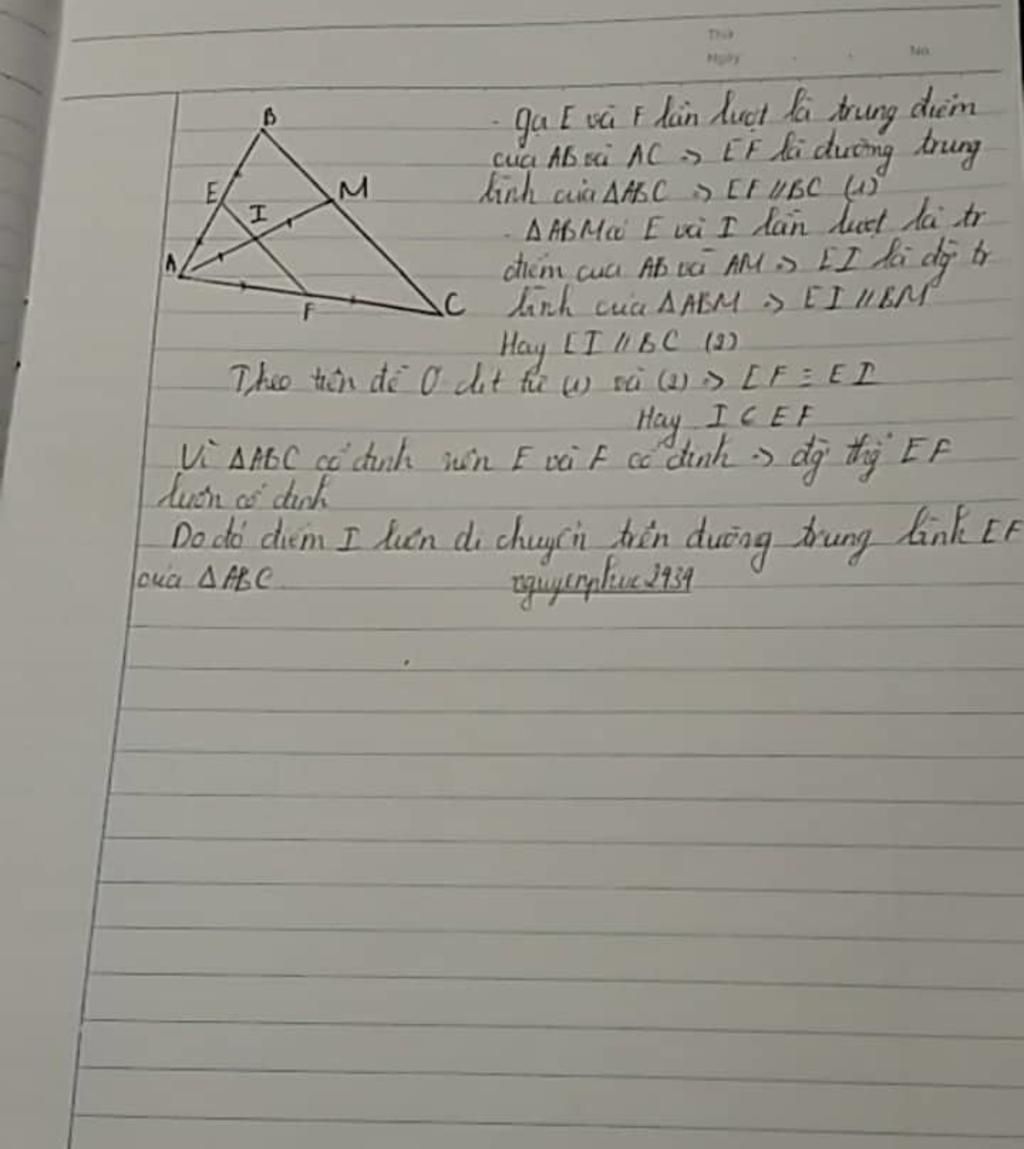 Thứ
Ngày . . No.
B
E
I
M
A
F
C
- Gọi E và F lần lượt là trung điểm
của AB và AC => EF là đường trung
bình của ΔABC => EF // BC (1)
- ΔABM có E và I lần lượt là tr
điểm của AB và AM => EI là đg tr
bình của ΔABM => EI // BM
Hay EI // BC (2)
Theo tiên đề Ơ clit từ (1) và (2) => EF ≡ EI
Hay I ⊂ EF
Vì ΔABC cố định nên E và F cố định => đg thg EF
luôn cố định
Do đó điểm I luôn di chuyển trên đường trung bình EF
của ΔABC
nguyenphuc2939